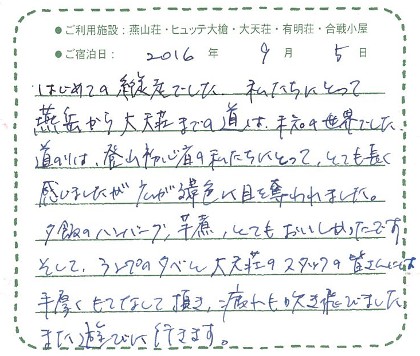 ●ご利用施設：燕山荘・ヒュッテ大槍・大天荘・有明荘・合戦小屋
●ご宿泊日： 2016 年 9 月 5 日
はじめての縦走でした。私たちにとって
燕岳から大天荘までの道は、未知の世界でした。
道のりは、登山初心者の私たちにとって、とても長く
感じましたが広がる景色に目を奪われました。
夕飯のハンバーグ、芋煮、とてもおいしかったです
そして、ランプの夕べに大天荘のスタッフの皆さんには
手厚くもてなして頂き、疲れも吹き飛びました
また遊びに行きます。